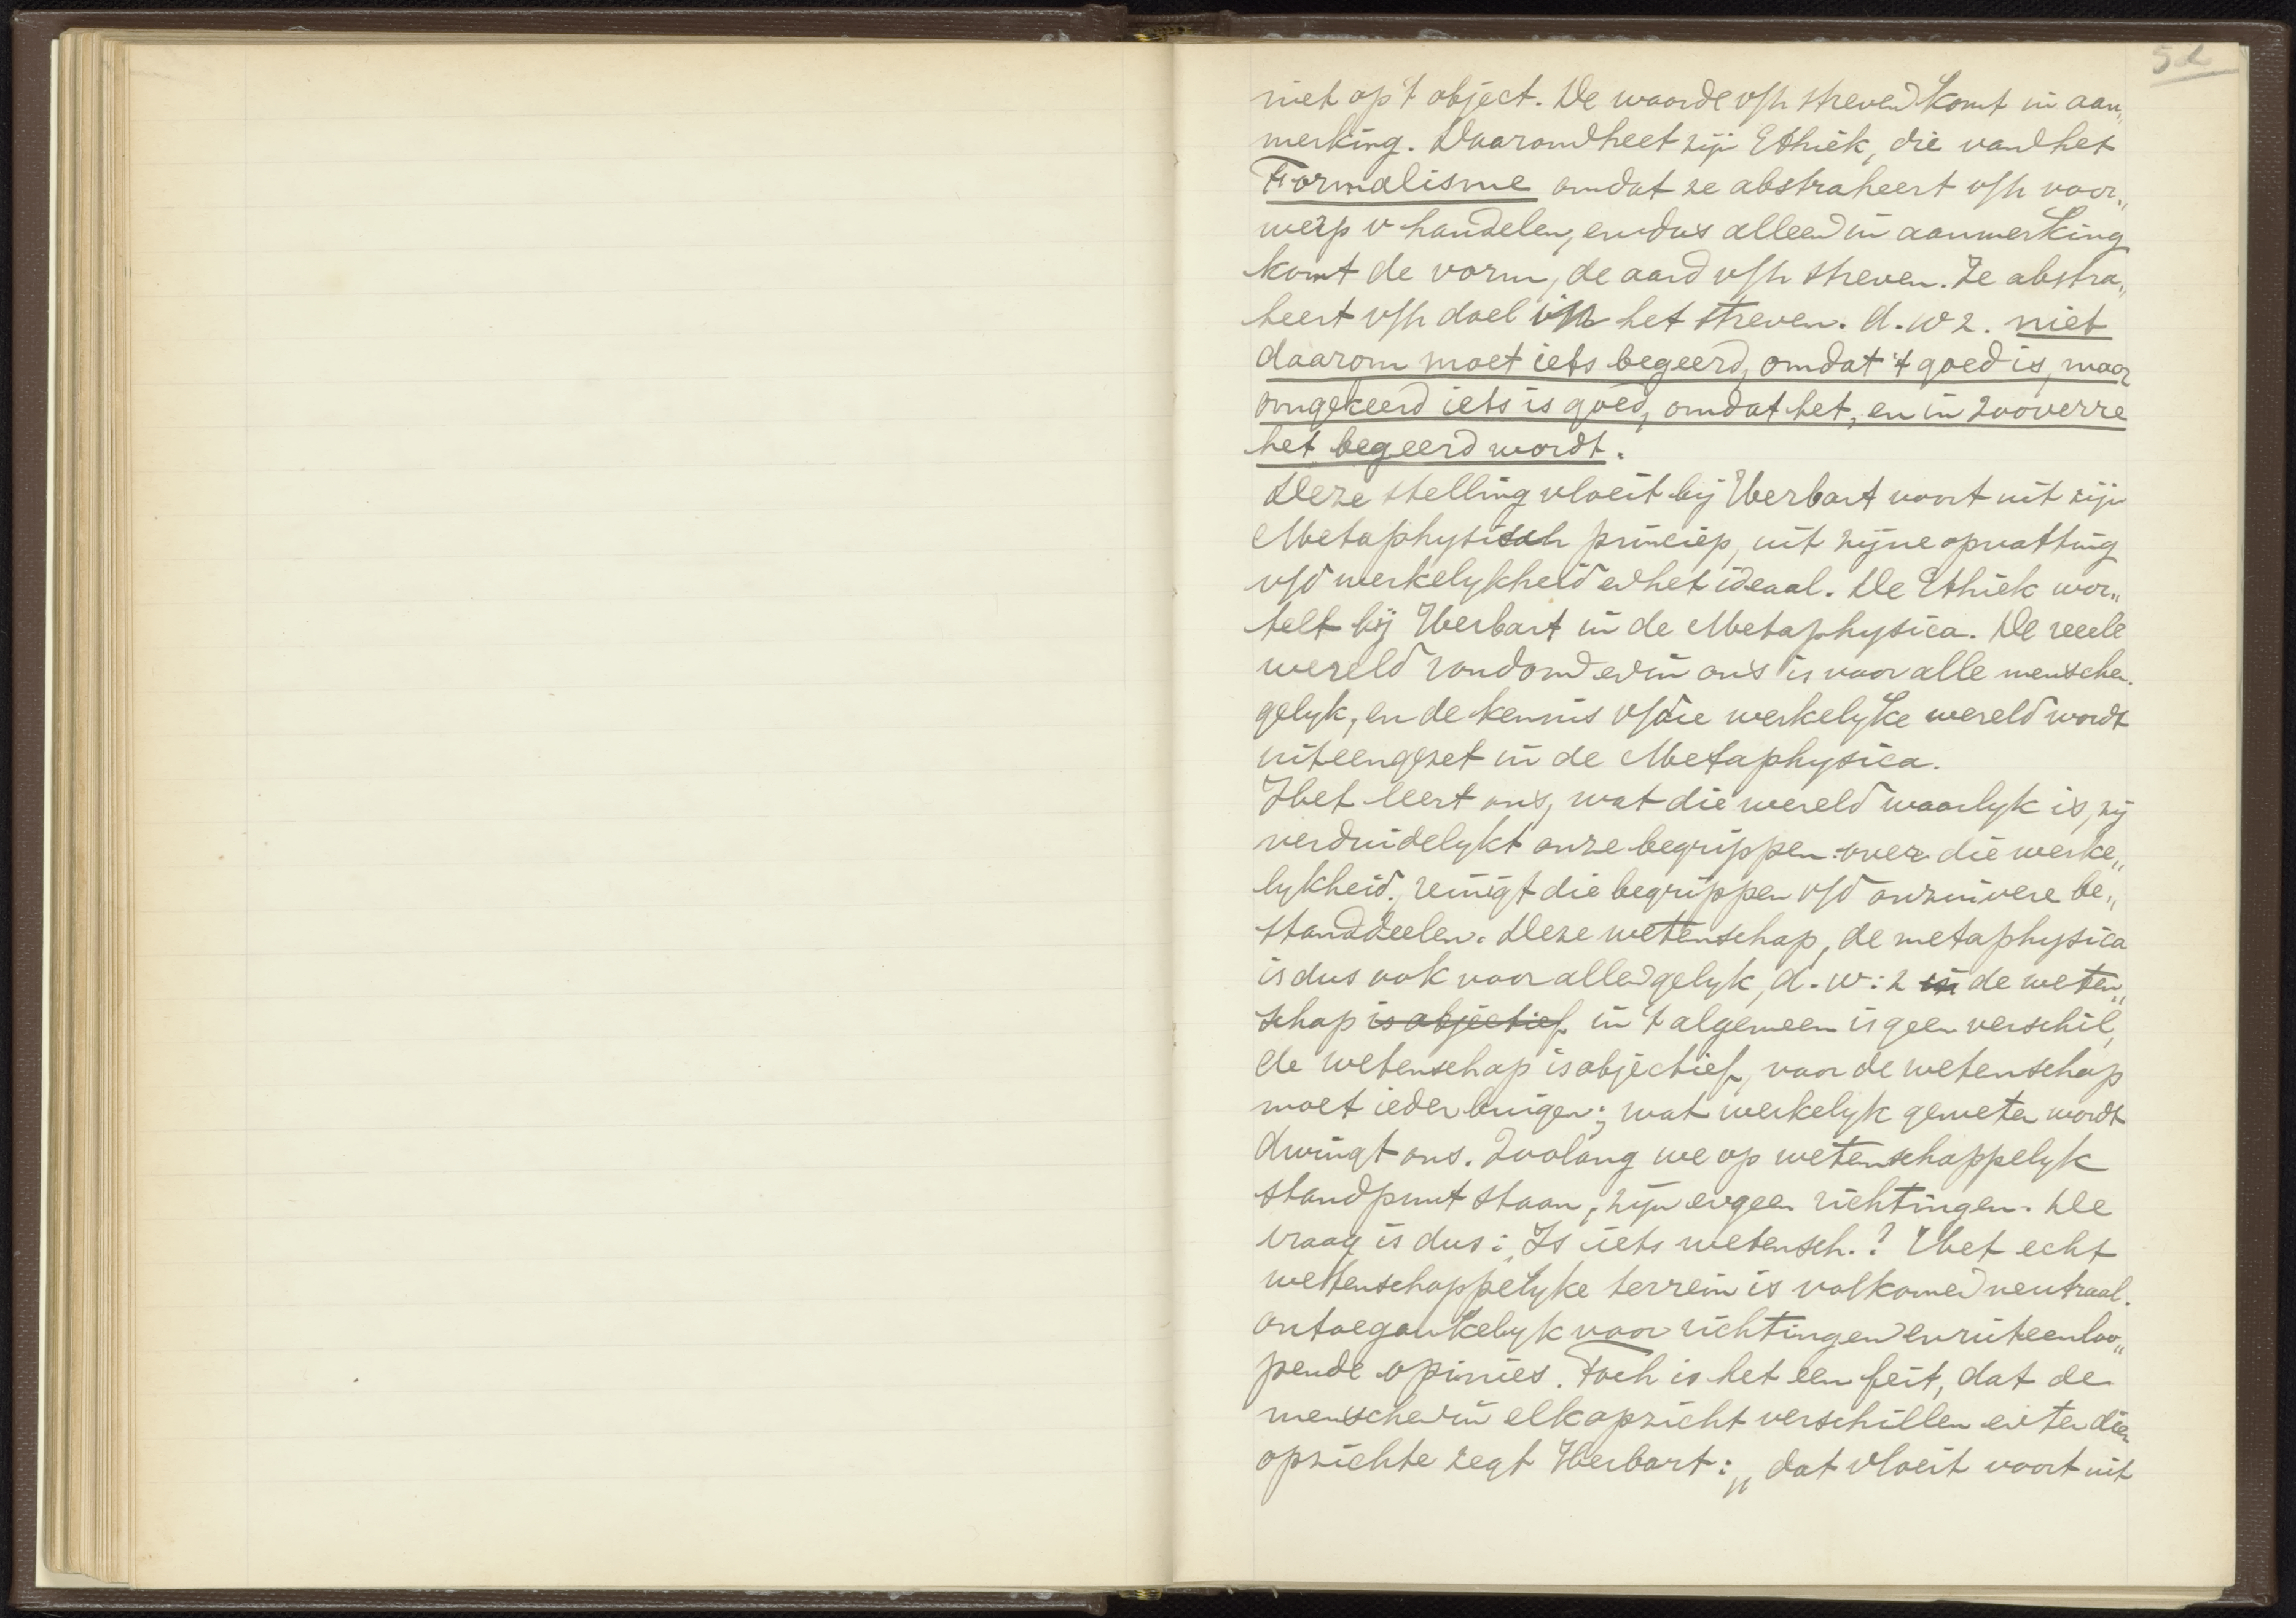 52
niet op 't object. De waarde v/h streven komt in aan„
merking. Daarom heet zijn Ethiek, die van het
Formalisme omdat ze abstraheert v/h voor„
werp v handelen, en dus alleen in aanmerking
komt de vorm, de aard v/h streven. Ze abstra„
heert v/h doel v/h het streven. d.w z. niet
daarom moet iets begeerd, omdat 't goed is, maar
omgekeerd iets is goed, omdat het, en in zooverre
het begeerd wordt.
Deze stelling vloeit bij Herbart voort uit zijn
Metaphysisch princiep, uit zijne opvatting
v/d werkelykheid en het ideaal. De Ethiek wor„
telt bij Herbart in de Metaphysica. De reeele
wereld rondom en in ons is voor alle menschen
gelyk, en de kennis v/die werkelyke wereld wordt
uiteengezet in de Metaphysica.
Het leert ons, wat die wereld waarlyk is, zij
verduidelykt onze begrippen over die werke„
lykheid, reinigt die begrippen v/d onzuivere be„
standdeelen. Deze wetenschap, de metaphysica
is dus ook voor allen gelyk, d.w:z in de weten„
schap is objectief in 't algemeen is geen verschil,
de wetenschap is objectief, voor de wetenschap
moet ieder buigen; wat werkelyk geweten wordt
dwingt ons. Zoolang we op wetenschappelyk
standpunt staan, zijn er geen richtingen. De
vraag is dus: Is iets wetensch.? Het echt
wettenschappelyke terrein is volkomen neutraal.
ontoegankelyk voor richtingen en uiteenloo„
pende opinies. Toch is het een feit, dat de
menschen in elk opzicht verschillen en ten dien
opzichte zegt Herbart: „dat vloeit voort uit